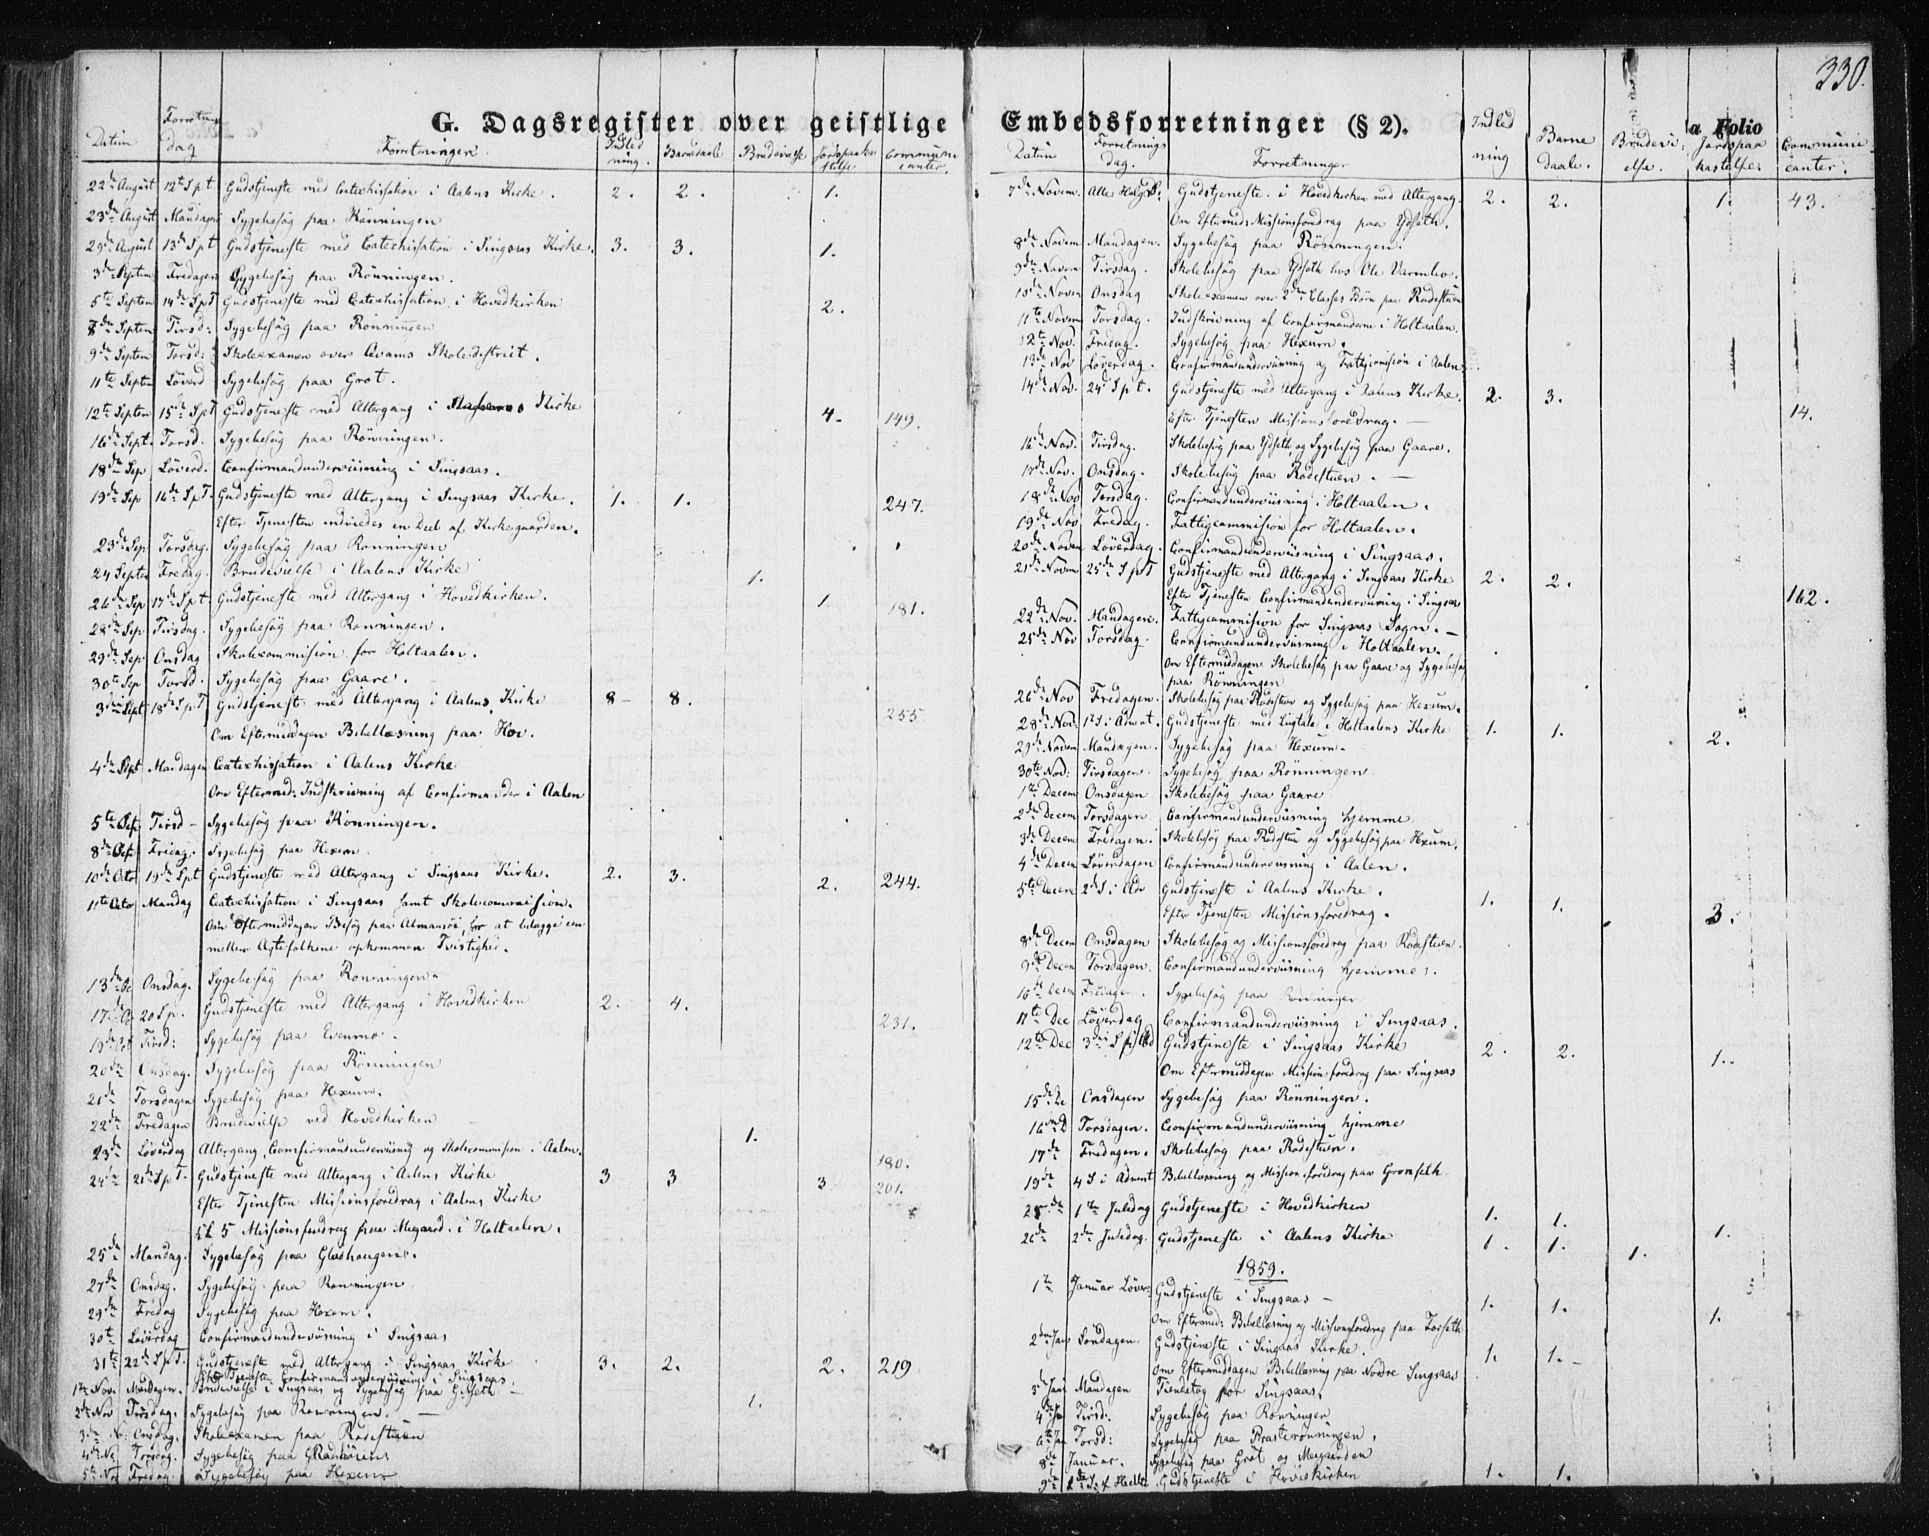 330.
G. Dagsregister over geistlige
Datum Forretnings dag Forretninger. Indledning. Barnedaab Brudevielse Jordpaakastelse Communicanter.
22de August 12te S p t Gudstjeneste med Catechisation i Aalens Kirke. 2. 2. 1.
23de August Mandagen Sygebesøg paa Rönningen
29de August 13de S p t Gudstjeneste med Catechisation i Singsaas Kirke. 3. 3. 1.
3de Septem Fredagen Sygebesøg paa Rönningen.
5te Septem 14de S p T Gudstjeneste med Catechisation i Hovedkirken 2.
Septem Tirsd: Sygebesøg paa Rönningen
9de Septem Torsd: Skoleexamen over Avams Skoledistrict.
11te Septem Löverd Sygebesøg paa Grot.
12te Septem 15de S p t Gudstjeneste med Altergang i Kirke 4. 149.
16de Sept. Torsd. Sygebesøg paa Rönningen.
18de Sep Löverd. Confirmandunderviisning i Singsaas.
19de Sep 16de S p T. Gudstjeneste med Altergang i Singsaas Kirke. 1. 1. 247.
Efter Tjenesten indviedes en Deel af Kirkegaarden.
23de Sep Torsdag. Sygebesøg paa Rönningen
24 Septem Fredag. Brudevielse i Aalens Kirke 1.
26de Sep 17de S p t Gudstjeneste med Altergang i Hovedkirken. 1 181.
28de Sep Tirsdag. Sygebesøg paa Rönningen.
29de Sep Onsdag Skolecommision for Holtaalen.
30te Sep Torsd. Sygebesøg paa Gaare.
3die Sept 18de S p T Gudstjeneste med Altergang i Aalens Kirke 8 - 8. 255
Om Eftermiddagen Bibellæsning paa Hov.
4de Sept Mandagen Catechisation i Aalens Kirke
Om Eftermid: Indskrivning af Confirmander i Aalen
5te Tirsd - Sygebesøg paa Rönningen.
8de Fredag. Sygebesøg paa Hexem
10de Octo 19de S p t Gudstjeneste med Altergang i Singsaas Kirke. 2. 3. 2. 244.
11te Octo Mandag Catechisation i Singsaas samt Skolecommision.
Om Eftermiddagen Besøg paa Almaasöi, for at bilægge en
mellem Ægtefolkene opkommen Tvistighed.
13de Oc Onsdag. Sygebesøg paa Rönningen.
17de Oc 20 S p. Gudstjeneste med Altergang i Hovedkirken 2. 4. 231.
19de Oct Tirsd: Sygebesøg paa Evenmo.
20de Onsdag. Sygebesøg paa Rönningen
21de Torsdagen Sygebesøg paa Hexum.
22de Fredagen Brudevielse ved Hovedkirken 1.
23de Löverdag Altergang, Confirmandunderviisning og Skolecommision i Aalen. 180.
24de 21de S p T. Gudstjeneste med Altergang i Aalens Kirke 3 3 3 201.
Efter Tjenesten Missionsforedrag i Aalens Kirke
Kl. 5 Missionsforedrag paa Megaard i Holtaalen.
25de Mandag. Sygebesøg paa Gladhaugen.
27de Onsdag. Sygebesøg paa Rönningen
29de Fredag Sygebesøg paa Hexem.
30te Löverdag Confirmandunderviisning i Singsaas
31te 22de S p T. Gudstjeneste med Altergang i Singsaas Kirke 3. 2. 2. 219
Efter Tjenesten Confirmandunderviisning i Singsaas.
1te Nov. Mandagen. Brudevielse i Singsaas og Sygebesøg paa 1.
2de Nov Tirsdag. Sygebesøg paa Rönningen.
3de N: Onsdag. Skoleexamen paa Rodestuen
4de No Torsdag. Sygebesøg paa
5te Nov Fredag. Sygebesøg paa Hexem
Embedsforretninger (§ 2).
a Folio
Datum Forretnings dag. Forretninger Indledning Barnedaab. Brudevielse. Jordpaakastelse. Communicanter.
7de Novem. Alle Helg D: Gudstjeneste i Hovedkirken med Altergang. 2. 2. 1. 43.
Om Eftermid: Missionsforedrag paa Ydseth.
8de Novem Mandagen. Sygebesøg paa Rönningen.
9de Novem Tirsdag. Skolebesøg paa Ydseth hos Ole Varmbo.
10de Novem Onsdag Skoleexamen over 2den Classes Börn paa Rodestuen
11te Novem Torsdag. Indskrivning af Confirmanderne i Holtaalen.
12te Nov. Fredag. Sygebesøg paa Hexum.
13de Nov Löverdag. Confirmandunderviisning og Fattigcomision i Aalen
14de Nov. 24de S p t. Gudstjeneste med Altergang i Aalens Kirke. 2. 3. 14.
Efter Tjenesten Missionsforedrag. -
16de Nov. Tirsdag. Skolebesøg paa Ydseth og Sygebesøg paa Gaare.
17de Nov. Onsdag. Skolebesøg paa Rodestuen. -
18de Nov Torsdag. Confirmandunderviisning i Holtaalen.
19de Nov Fredag. Fattigcommision for Holtaalen.
20de Novem Löverdag. Confirmandunderviisning i Singsaas.
21de Novem 25de S p T Gudstjeneste med Altergang i Singsaas Kirke 2. 2. 162.
Efter Tjenesten Confirmandunderviisning i Singsaas
22de Nov. Mandagen. Fattigcommision for Singsaas Sogn. -
25de Nov Torsdag. Confirmandunderviisning i Holtaalen.
Om Eftermiddagen Skolebesøg paa Gaare og Sygebesøg
paa Rönningen
26de Nov Fredagen. Skolebesøg paa Rodestuen og Sygebesøg paa Hexum.
28de Nov: 1te S. i Advent. Gudstjeneste med Liigtale i Holtaalens Kirke 1. 1. 2.
29de Novem Mandagen. Sygebesøg paa Hexum.
30te Nov: Tirsdagen. Sygebesøg paa Rönningen
1te Decem Onsdagen Skolebesøg paa Gaare
2de Decem Torsdagen Confirmandunderviisning hjemme
3de Decem Fredagen. Skolebesøg paa Rodestuen og Sygebesøg paa Hexum.
4de Decem Löverdagen Confirmandunderviisning i Aalen.
5te Decem 2de S. i Adv Gudstjeneste i Aalens Kirke. 1. 1. 3.
Efter Tjenesten Missionsforedrag.
8de Decem Onsdagen Skolebesøg og Missionsforedrag paa Rodestuen
9de Decem Torsdagen. Confirmandunderviisning hjemme.
10de Decem Fredagen. Sygebesøg paa Rönningen
11te Dec Löverdag Confirmandunderviisning i Singsaas.
12te Dec 3die S i Ad Gudstjeneste i Singsaas Kirke 2. 2. 1.
Om Eftermiddagen Missionsforedrag paa Singsaas
15de De Onsdagen Sygebesøg paa Rönningen.
16de D Torsdagen. Confirmandunderviisning hjemme
17de Fredagen. Skolebesøg paa Rodestuen.
19de 4 S i Advent Bibellæsning og Missionsforedrag paa Gronseth
25de 1te Juledag Gudstjeneste i Hovedkirken 1. 1. 1.
26de 2den Juledag. Gudstjeneste i Aalens Kirke 1. 1. 1.
1859.
1te Januar Löver: Gudstjeneste i Singsaas - 1. 1. 1.
Om Eftermid: Bibellæsning og Missionsforedrag paa Forseth
2den Jan Söndagen. Gudstjeneste i Singsaas Kirke. 1. 1. -
Om Eftermiddagen Bibellæsning paa Nordre Singsaas
3de Jan Mandagen Tiendetag for Singsaas.
4de Jan Tirsd: Sygebesøg paa Rönningen
6te Jan Torsd: Sygebesøg paa Brasterönningen.
8de Januar. Sygebesøg paa Gröt og Megaarden
9de 1ste S. ef Hellt. Gudstjeneste i Hovedkirken 1. 1.